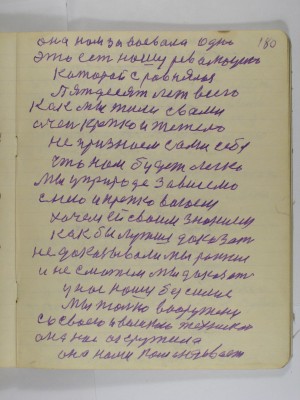 она нам завоевала одно
это сет нашу революцию
которой сровнялось
Пятдесят лет всего
как мы жили с вами
очен крепко и тежело
не признаем сами себе
что нам будет легко
мы у природе зависемо
с нею и крепко воюем
хочем ей своим знанием
как бы лутше доказат
не доказывали мы раньше
и не сможем мы доказат
у нас нашу бесилие
мы только вооружены
со своею и военной техникой
она нас окружила
она нами командывает
180